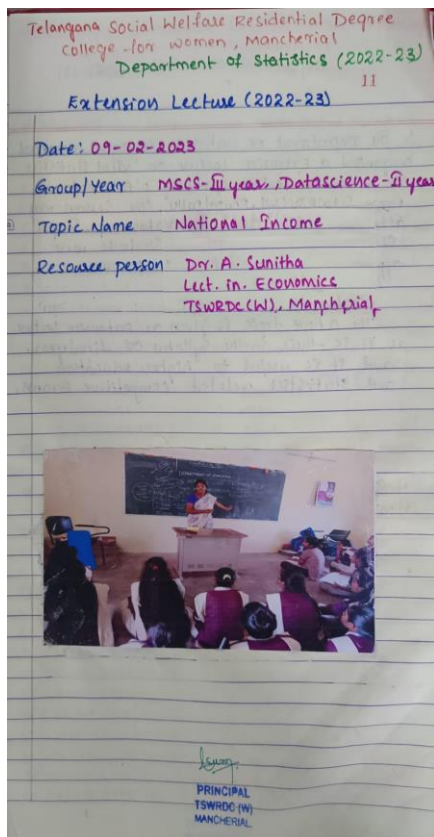 Telangana Social Welfare Residential Degree
College for women, Mancherial
Department of Statistics (2022-23)
11
Extension Lecture (2022-23)
Date: 09-02-2023
Group/Year MSCS-III year, Datascience-II year
Topic Name National Income
Resource person Dr. A. Sunitha
Lect. in. Economics
TSWRDC(W), Mancherial,
PRINCIPAL
TSWRDC (W)
MANCHERIAL